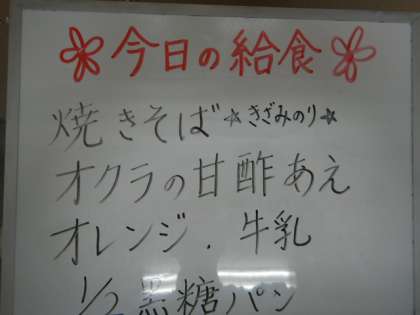 今日の給食
焼きそば☆きざみのり☆
オクラの甘酢あえ
オレンジ.牛乳
1/2黒糖パン